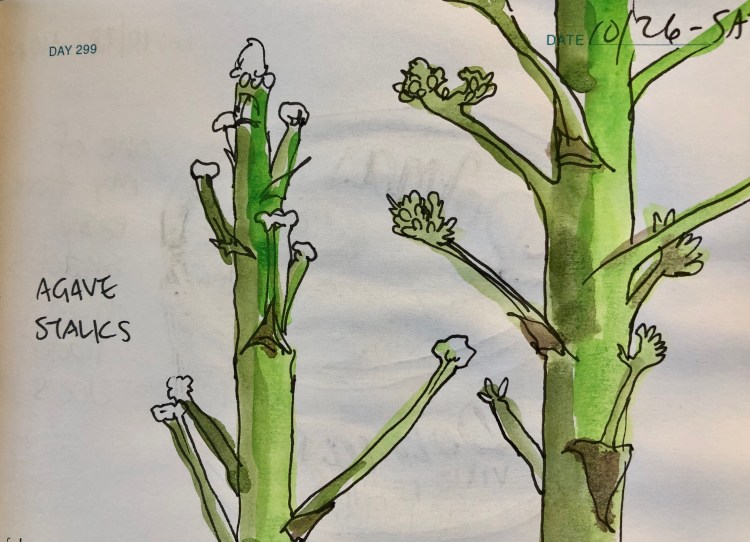 DAY 299
DATE 10/26-SA
AGAVE
STALKS